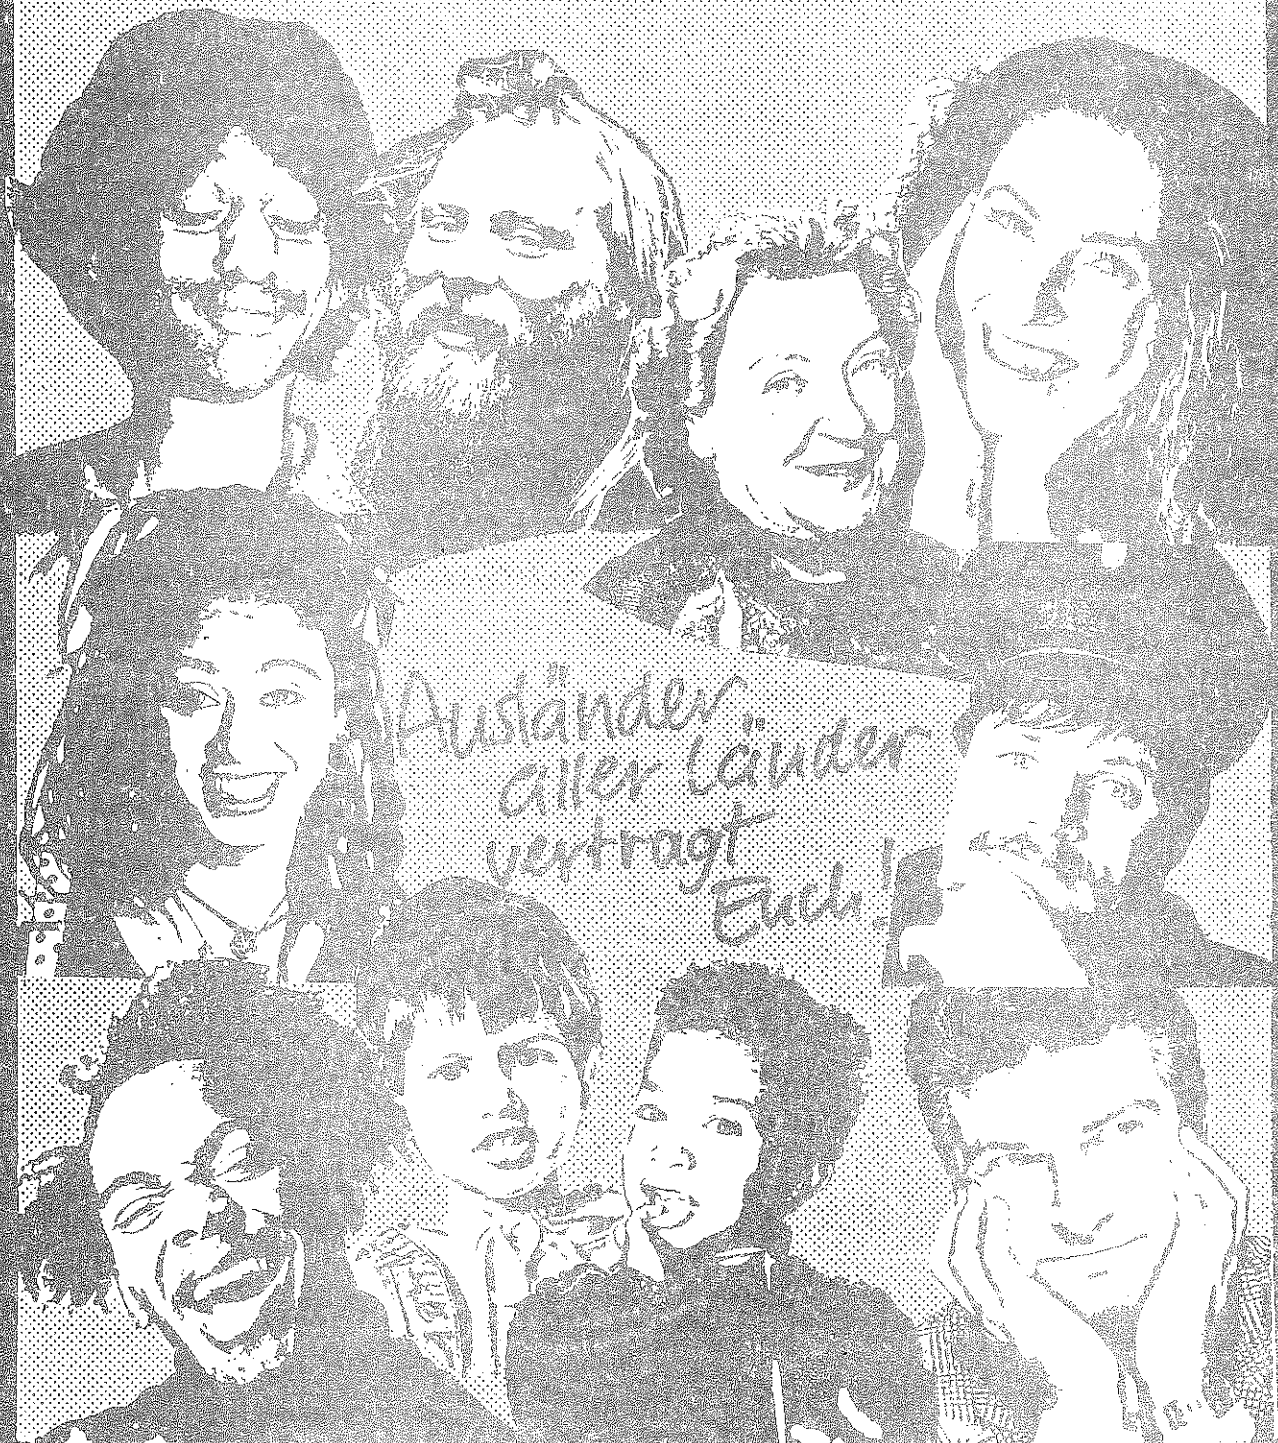 Ausländer
aller Länder
vertragt
Euch!